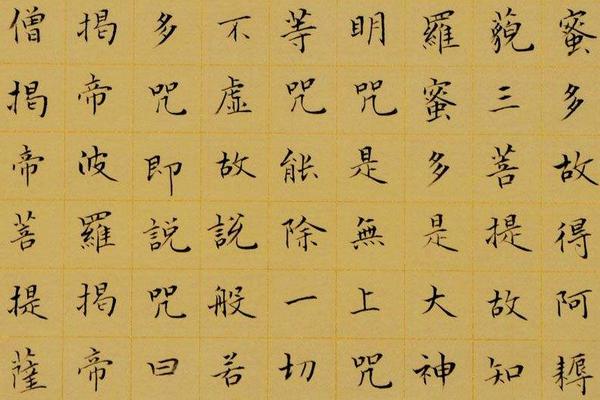 蜜多故得阿耨
藐三菩提故知
羅蜜多是大神
明咒是無上咒
等咒能除一切
不虛故說般若
多咒即說咒曰
揭帝波羅揭帝
僧揭帝菩提薩